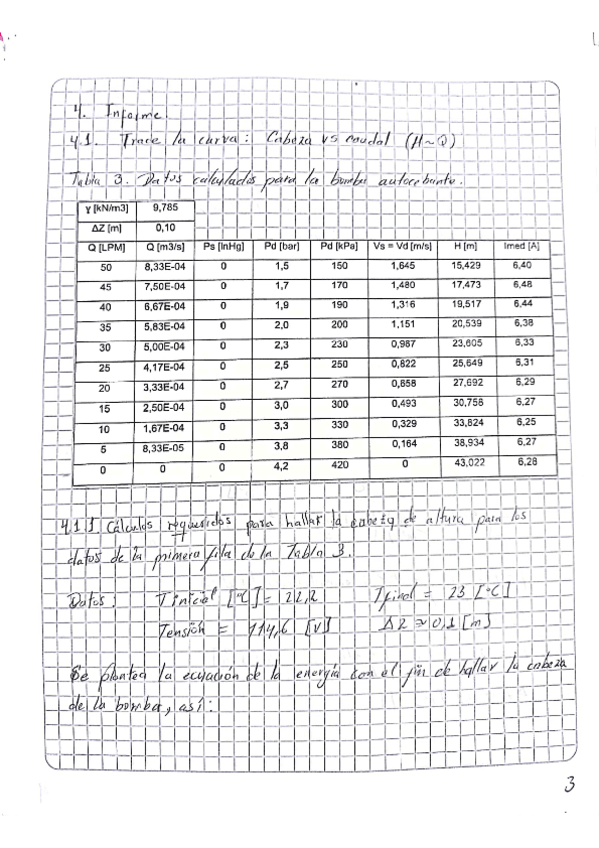 4. Informe.
4.1. Trace la curva: Cabeza vs caudal (H~Q)
Tabla 3. Datos calculados para la bomba autocebante.
γ [kN/m3] 9,785
ΔZ [m] 0,10
Q [LPM] Q [m3/s] Ps [InHg] Pd [bar] Pd [kPa] Vs = Vd [m/s] H [m] Imed [A]
50 8,33E-04 0 1,5 150 1,645 15,429 6,40
45 7,50E-04 0 1,7 170 1,480 17,473 6,48
40 6,67E-04 0 1,9 190 1,316 19,517 6,44
35 5,83E-04 0 2,0 200 1,151 20,539 6,38
30 5,00E-04 0 2,3 230 0,987 23,605 6,33
25 4,17E-04 0 2,5 250 0,822 25,649 6,31
20 3,33E-04 0 2,7 270 0,658 27,692 6,29
15 2,50E-04 0 3,0 300 0,493 30,758 6,27
10 1,67E-04 0 3,3 330 0,329 33,824 6,25
5 8,33E-05 0 3,8 380 0,164 38,934 6,27
0 0 0 4,2 420 0 43,022 6,28
4.1.1 Cálculos requeridos para hallar la cabeza de altura para los
datos de la primera fila de la Tabla 3.
Datos: T inicial [°C] = 22,2 T final = 23 [°C]
Tensión = 114,6 [V] ΔZ ≈ 0,1 [m]
Se plantea la ecuación de la energía con el fin de hallar la cabeza
de la bomba, así:
3